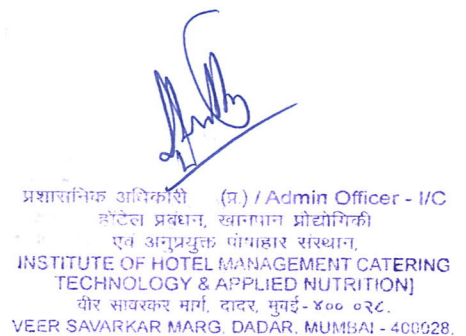 प्रशासनिक अधिकारी (प्र.) / Admin Officer - I/C
होटेल प्रबंधन, खानपान प्रौद्योगिकी
एवं अनुप्रयुक्त पोषाहार संस्थान,
INSTITUTE OF HOTEL MANAGEMENT CATERING
TECHNOLOGY & APPLIED NUTRITION]
वीर सावरकर मार्ग, दादर, मुंबई - ४०० ०२८.
VEER SAVARKAR MARG, DADAR, MUMBAI - 400028.